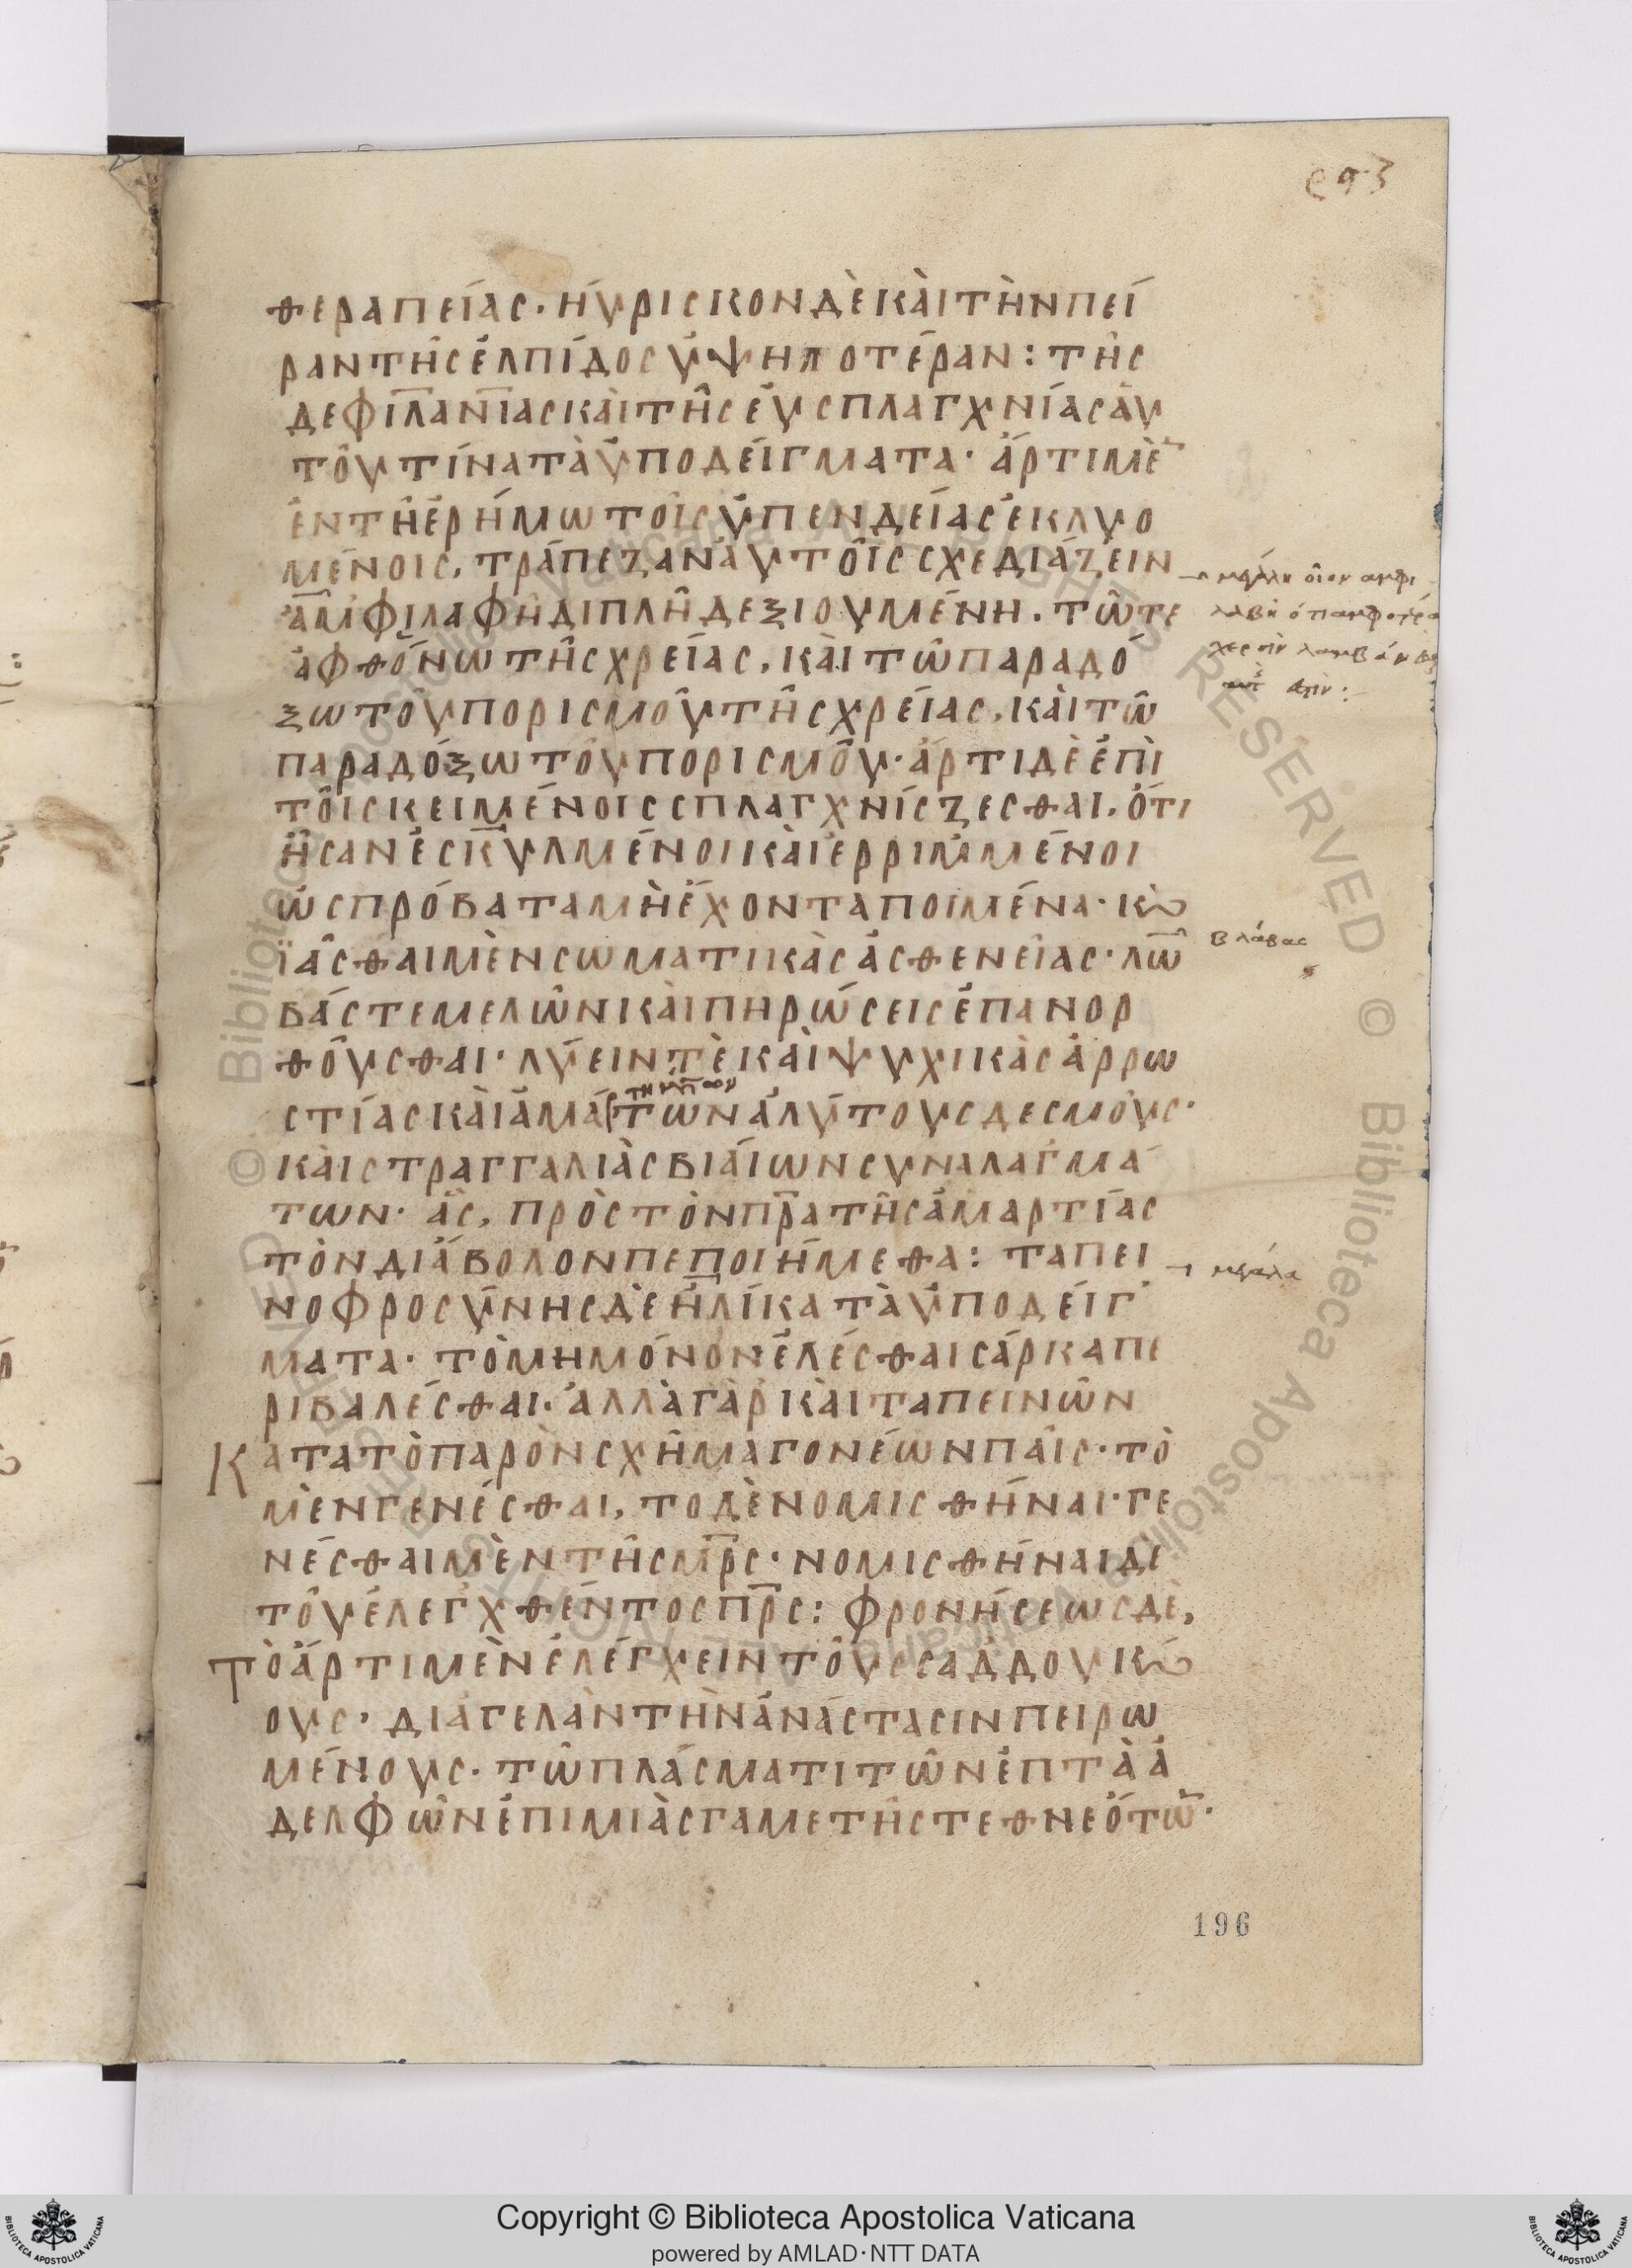 ρϟϛ
θεραπείας· ηὕρισκον δὲ κὰι τὴν πεί
ραν τῆς ἐλπίδος ὑψηλοτέραν: τῆς
δε φιλανίας κὰι τῆς ἐυσπλαγχνίας ἀυ
τοῦ τίνα τὰ ὑποδείγματα· ἄρτι μὲ̅
ἐν τῆ ἐρήμω τοῖς ὑπ ενδείας ἐκλυο
μένοις, τράπεζαν ἀυτοῖς σχεδιάζειν
ἀμφιλαφῆ διπλῆ δεξιουμένη. τῶ τε
ἀφθόνω τῆς χρείας, κὰι τῶ παραδό
ξω τοῦ πορισμοῦ τῆς χρείας, κὰι τῶ
παραδόξω τοῦ πορισμοῦ· ἄρτι δὲ ἐπὶ
τοῖς κειμένοις σπλαγχνίσζεσθαι, ὅτι
ἦσαν ἐσκυλμένοι κὰι ἐρριμμένοι
ὡς πρόβατα μὴ ἔχοντα ποιμένα· κϗ
ἰᾶσθαι μὲν σωματικὰς ἀσθενείας· λω
βάς τε μελῶν κὰι πηρώσεις ἐπανορ
θοῦσθαι· λύειν τὲ κὰι ψυχικὰς ἀρρω
στίας κὰι ἁμάρτων ἀλύτους δεσμοὺς·
κὰι στραγγαλιὰς βιάιων συναλαγμά
των· ἃς, πρὸς τὸν πρ̅α τῆς ἁμαρτίας
τὸν διάβολον πεποιήμεθα: ταπει
νοφροσύνης δὲ ἡλίκα τὰ ὑποδείγ
ματα· τὸ μη μόνον ἑλέσθαι σάρκα πε
ριβαλέσθαι· ἀλλὰ γὰρ κὰι ταπεινῶν
κατα τὸ παρὸν σχῆμα γονέων πᾶις· τὸ
μὲν γενέσθαι, το δὲ νομισθῆναι· γε
νέσθαι μὲν τῆς μρ̅ς· νομισθῆναι δὲ
τοῦ ἐλεγχθέντος πρ̅ς: φρονήσεως δὲ,
τὸ ἄρτι μὲν ἐλέγχειν τοὺς σαδδουκϗ
ους· διαγελὰν τὴν ἀνάστασιν πειρω
μένους· τῶ πλάσματι τῶν ἑπτὰ ἀ
δελφῶν ἐπι μιὰς γαμετῆς τεθνεότω̅·
μεγάλη οἷον αμφι
λαβὴ ὅτι αμφοτέρα
χερσὶν λαμβάν
βλάβας
μεγάλα
196
Copyright © Biblioteca Apostolica Vaticana
powered by AMLAD·NTT DATA